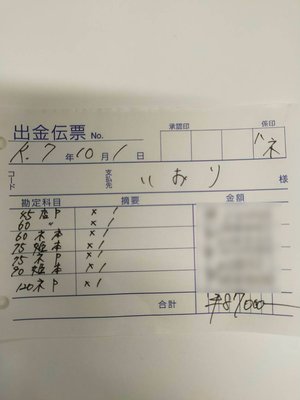 出金伝票 No.
承認印 係印
R.7年10月1日 ハネ
コード 支払先 いおり 様
勘定科目 摘要 金額
45 店P ×1
60 〃 ×1
60 本 ×1
75 姫本 ×1
75 ネP ×1
90 姫本 ×1
120 ネP ×1
合計 ¥87000